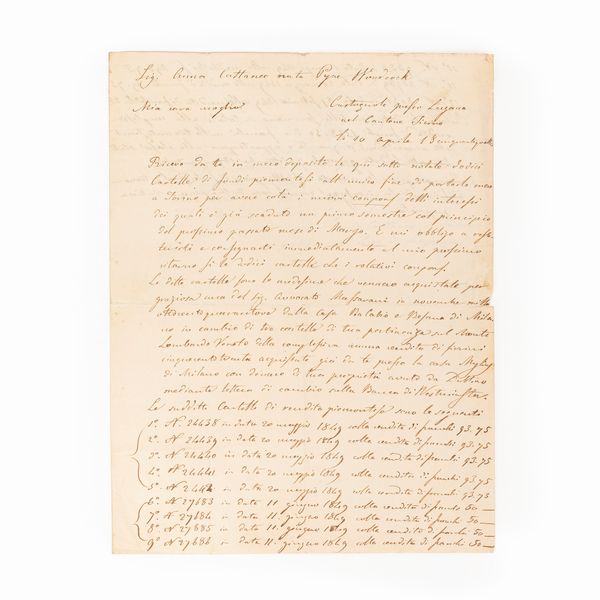 Sig. Anna Cattaneo nata Pyne Woodcock
Mia cara moglie
Castagnola presso Lugano
nel Cantone Ticino
li 10 aprile 18cinquanta
Ricevo da te in mero deposito le qui sotto notate dodici
Cartelle di fondi piemontesi all'unico fine di portarle meco
a Torino per avere colà i nuovi coupons delli interessi
dei quali è già scaduto un primo semestre col principio
del prossimo passato mese di Marzo. E mi obbligo a
tuirti e consegnarti immediatamente al mio prossimo
ritorno sì le dodici cartelle che i relativi coupons.
Le dette cartelle sono le medesime che vennero acquistate per
graziosa cura del Sig. Avvocato Massarani in novembre mille
ottocentoquarantanove dalla Casa Balabio e Besana di Mila-
no in cambio di tre cartelle di tua pertinenza sul Monte
Lombardo Veneto della complessiva annua rendita di fiorini
cinquecentotrenta acquistate già da te presso la casa Mylius
di Milano con denaro di tua proprietà avuto da Dublino
mediante lettera di cambio sulla Banca di Westminster.
Le suddette Cartelle di rendita piemontese sono le seguenti
1° N. 24438 in data 20 maggio 1849 colla rendita di franchi 93.75
2° N. 24439 in data 20 maggio 1849 colla rendita di franchi 93.75
3° N 24440 in data 20 maggio 1849 colla rendita di franchi 93.75
4° N 24441 in data 20 maggio 1849 colla rendita di franchi 93.75
5° N 2442 in data 20 maggio 1849 colla rendita di franchi 93.75
6° N 27683 in data 11. giugno 1849 colla rendita di franchi 50 —
7° N 27684 in data 11. giugno 1849 colla rendita di franchi 50 —
8° N 27685 in data 11. giugno 1849 colla rendita di franchi 50 —
9° N 27686 in data 11. giugno 1849 colla rendita di franchi 50 —